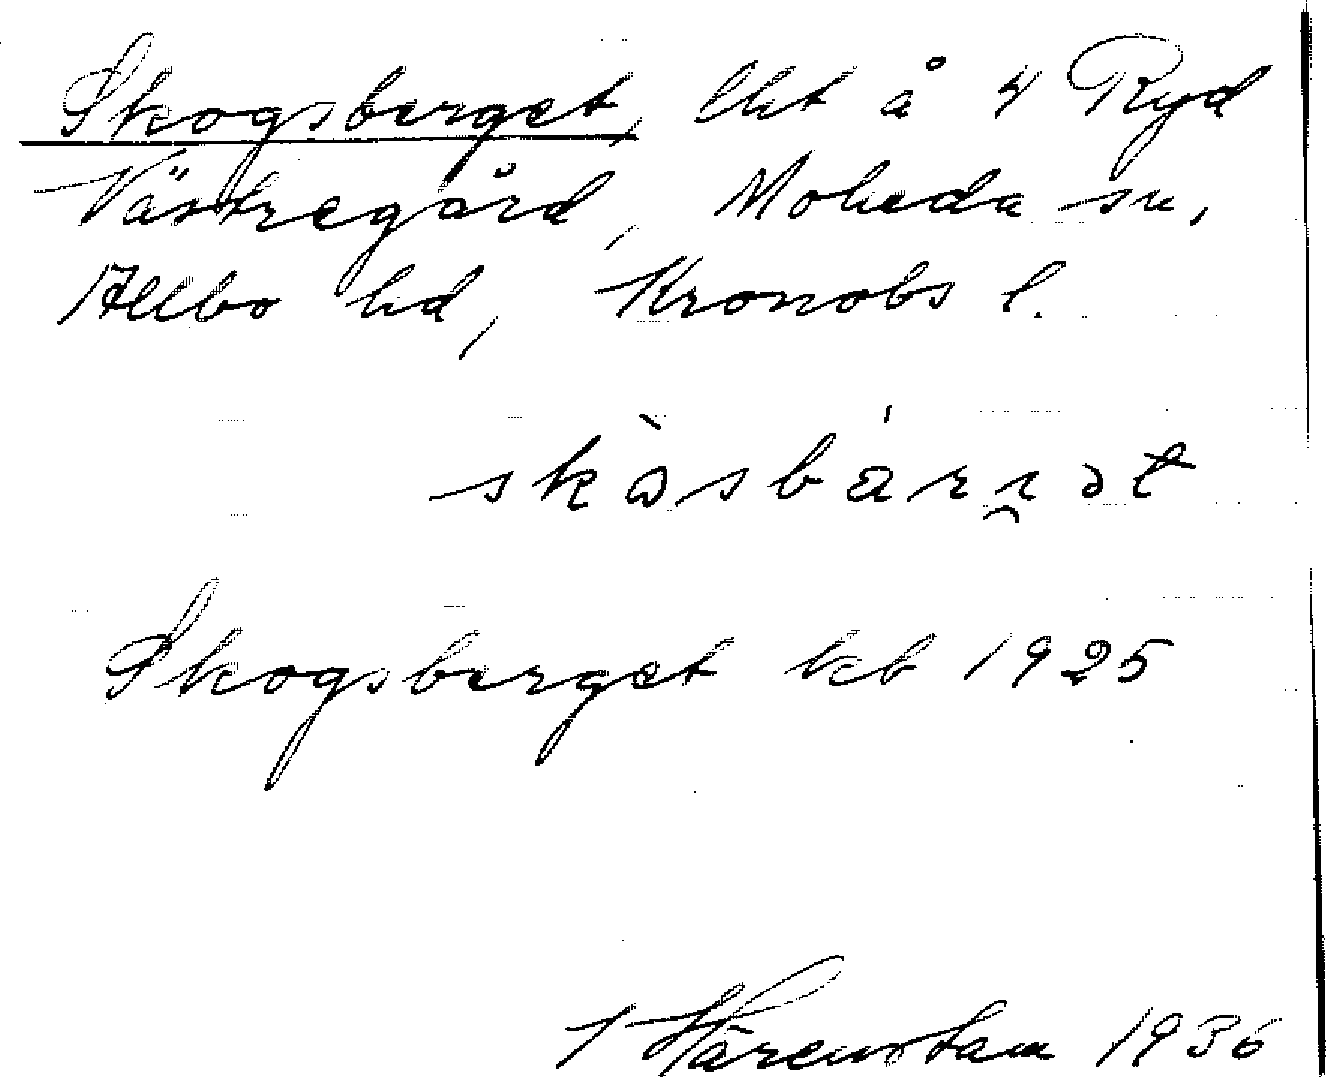 Skogsberget, lht å 4 Ryd
Västregård, Moheda sn,
Allbo hd, Kronobs l.
Skogsberget kb 1925
Härenstam 1936